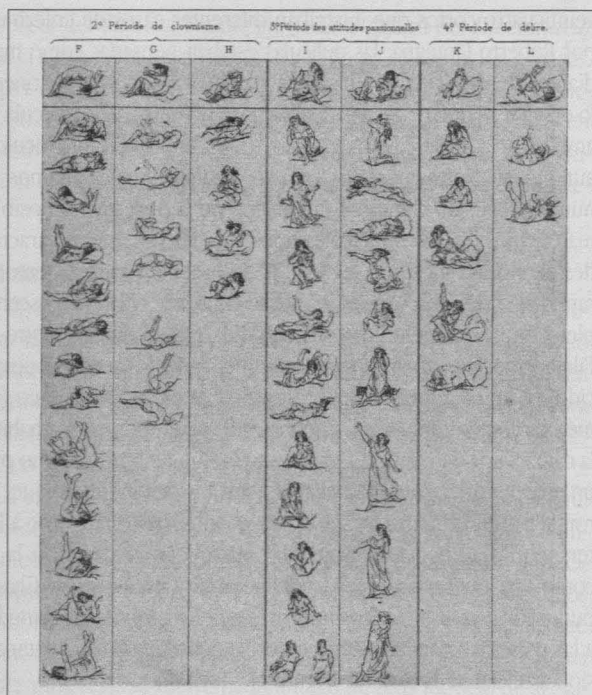 2ᵉ Période de clownisme. 3ᵉ Période des attitudes passionnelles 4ᵉ Période de délire.
F G H I J K L